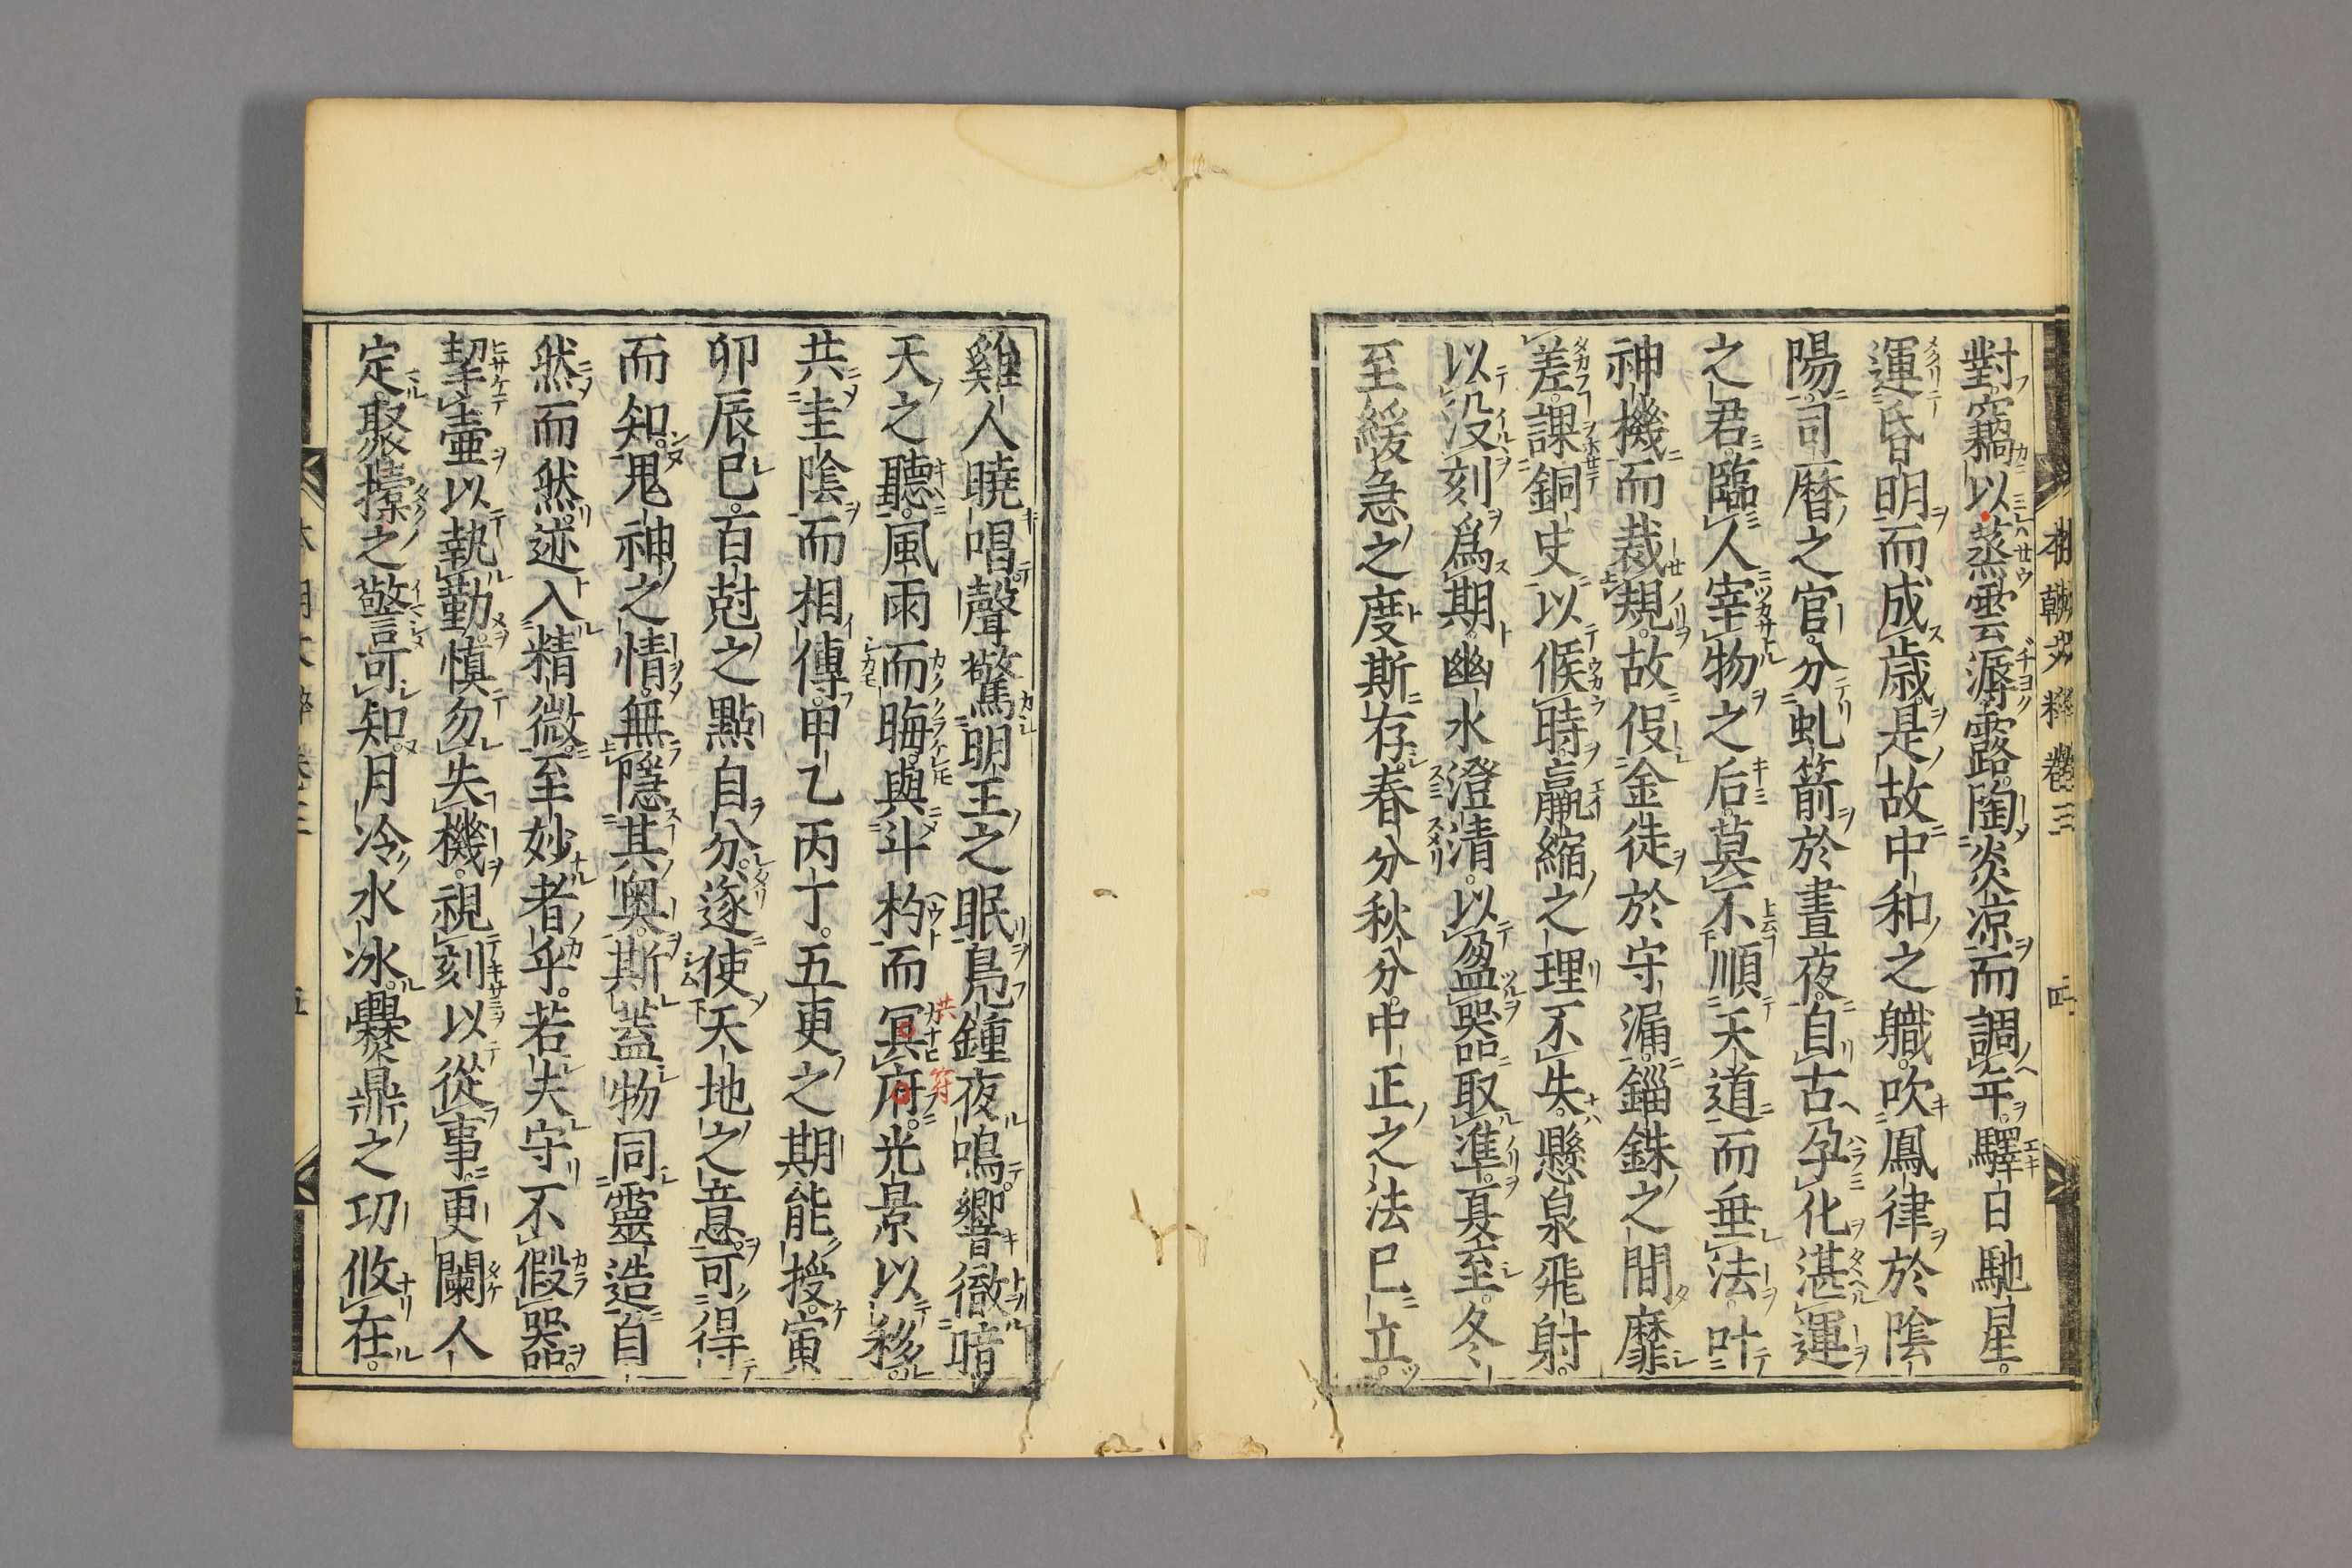 對竊以蒸雲潺露陶炎凉而調年驛日馳星
運昏明而成歳是故中和之職吹鳳律於陰
陽司暦之官分虬箭於晝夜自古孕化湛運
之君臨人宰物之后莫不順天道而垂法叶
神機而裁規故伇金徒於守漏錙銖之間靡
差課銅史以候時贏縮之理不失懸泉飛射
以没刻爲期幽水澄清以盈器取準夏至冬
至緩急之度斯存春分秋分中正之法已立
本朝文粹卷三
四
雞人曉唱聲驚明王之眠鳬鐘夜鳴響徹暗
天之聽風雨而晦與斗杓而冥府光景以移
共
符
共圭陰而相傳甲乙丙丁五更之期能授寅
卯辰巳百尅之點自分遂使天地之意可得
而知鬼神之情無隱其奥斯蓋物同靈造自
然而然迹入精微至妙者乎若夫守不假器
挈壷以執勤愼勿失機視刻以從事更闌人
定聚㯱之警可知月冷水冰爨鼎之功攸在
五